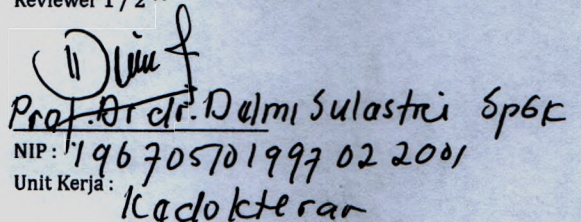 Reviewer 1 / 2
Prof. Dr dr. Delmi Sulastri SpGK
NIP : 196705701997 02 2001
Unit Kerja :
Kedokteran